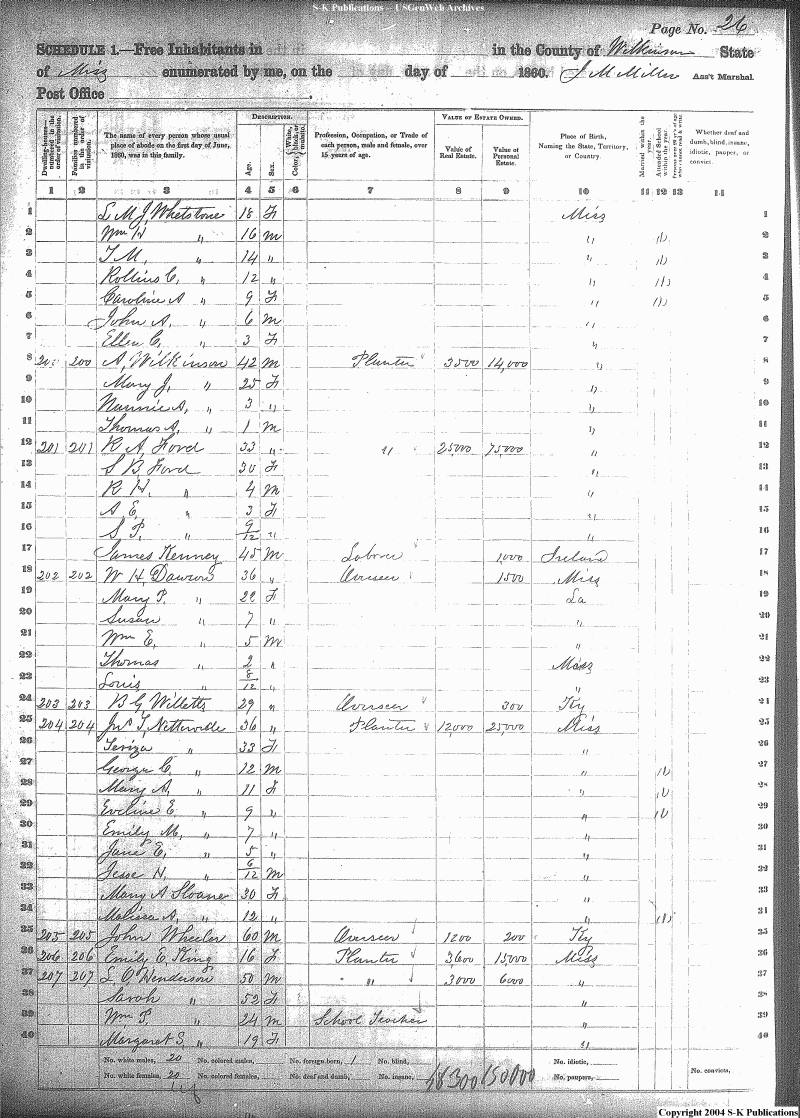 S-K Publications -- USGenWeb Archives
Page No. 26
SCHEDULE 1.—Free Inhabitants in in the County of Wilkinson State
of Miss enumerated by me, on the day of 1860. J M Miller Ass't Marshal.
Post Office
DESCRIPTION. VALUE OF ESTATE OWNED.
Dwelling-houses—numbered in the order of visitation. Families numbered in the order of visitation. The name of every person whose usual place of abode on the first day of June, 1860, was in this family. Age. Sex. Color, White, black, or mulatto. Profession, Occupation, or Trade of each person, male and female, over 15 years of age. Value of Real Estate. Value of Personal Estate. Place of Birth, Naming the State, Territory, or Country. Married within the year. Attended School within the year. Whether deaf and dumb, blind, insane, idiotic, pauper, or convict.
1 2 3 4 5 6 7 8 9 10 11 12 13 14
1 L M J, Whetstone 18 F Miss 1
2 Wm H " 16 M " 1 2
3 T M, " 14 " " 1 3
4 Rollins C, " 12 " " 1 4
5 Caroline A " 9 F " 1 5
6 John A, " 6 M " 6
7 Ellen C, " 3 F " 7
8 200 200 A, Wilkinson 42 M Planter 3500 14,000 " 8
9 Mary J, " 25 F " 9
10 Nannie A, " 3 " " 10
11 Thomas A, " 1 M " 11
12 201 201 R A, Ford 33 " " 25,000 75,000 " 12
13 S B, Ford 30 F " 13
14 R H, " 4 M " 14
15 A E, " 3 F " 15
16 S P, " 9/12 " " 16
17 James Kenney 45 M Laborer 1,000 Ireland 17
18 202 202 W H, Dawson 36 " Overseer 1500 Miss 18
19 Mary P, " 22 F La 19
20 Susan " 7 " " 20
21 Wm E, " 5 M " 21
22 Thomas " 2 " Miss 22
23 Louis " 8/12 " " 23
24 203 203 B G, Willetts 29 " Overseer 300 Ky 24
25 204 204 Jno T, Netterville 36 " Planter 12,000 25,000 Miss 25
26 Teriza " 33 F " 26
27 George C, " 12 M " 1 27
28 Mary A, " 11 F " 1 28
29 Eveline E, " 9 " " 1 29
30 Emily M, " 7 " " 30
31 Jane E, " 5 " " 31
32 Jesse N, " 6/12 M " 32
33 Mary A Sloane 30 F " 33
34 Malissa A, " 12 " " 1 34
35 205 205 John Wheeler 60 M Overseer 1200 200 Ky 35
36 206 206 Emily E, King 16 F Planter 3600 15000 Miss 36
37 207 207 L O, Henderson 50 M " 3000 6000 " 37
38 Sarah " 52 F " 38
39 Wm P, " 24 M School Teacher " 39
40 Margaret S, " 19 F " 40
No. white males, 20 No. colored males, No. foreign born, 1 No. blind, No. idiotic, No. convicts,
No. white females, 20 No. colored females, No. deaf and dumb, No. insane, 48300 150000 No. paupers,
Copyright 2004 S-K Publications